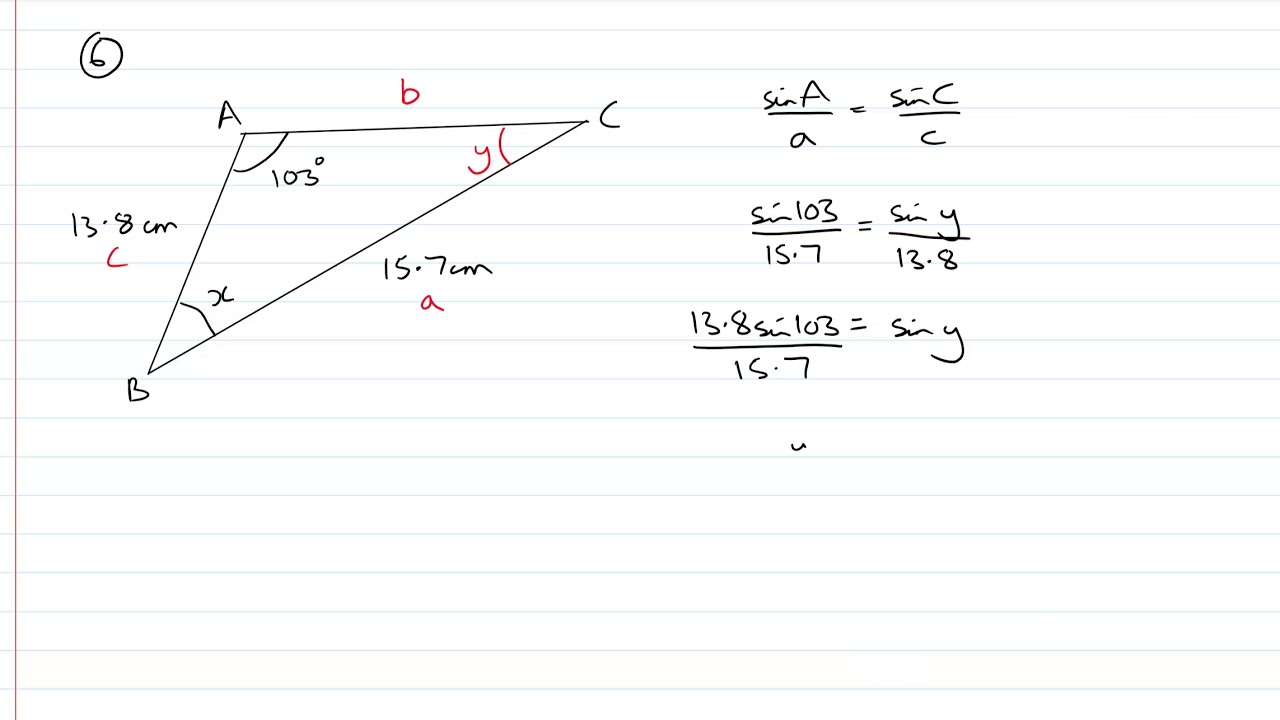 6
A
b
C
103°
y
13.8cm
c
15.7cm
a
x
B
sinA/a = sinC/c
sin103/15.7 = sin y/13.8
13.8sin103/15.7 = sin y